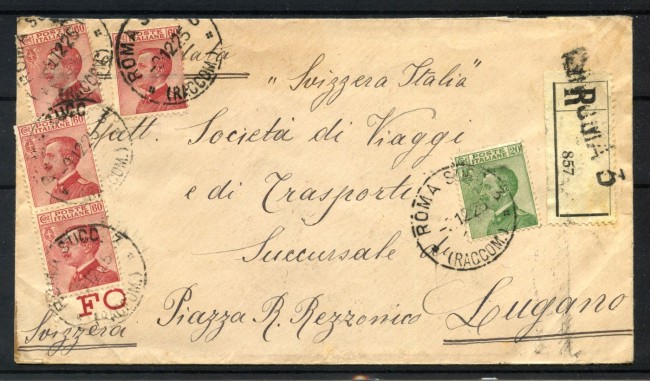 "Svizzera Italia"
Società di Viaggi
e di Trasporti
Succursale
Piazza R. Rezzonico
Lugano
Svizzera
POSTE ITALIANE 60
POSTE ITALIANE 60
POSTE ITALIANE 60
POSTE ITALIANE 60
FO
POSTE ITALIANE 20
ROMA
(RACCOM.)
ROMA SUCC. 3
(RACCOM.)
ROMA
12.25
(RACCOM.)
R
ROMA 3
857